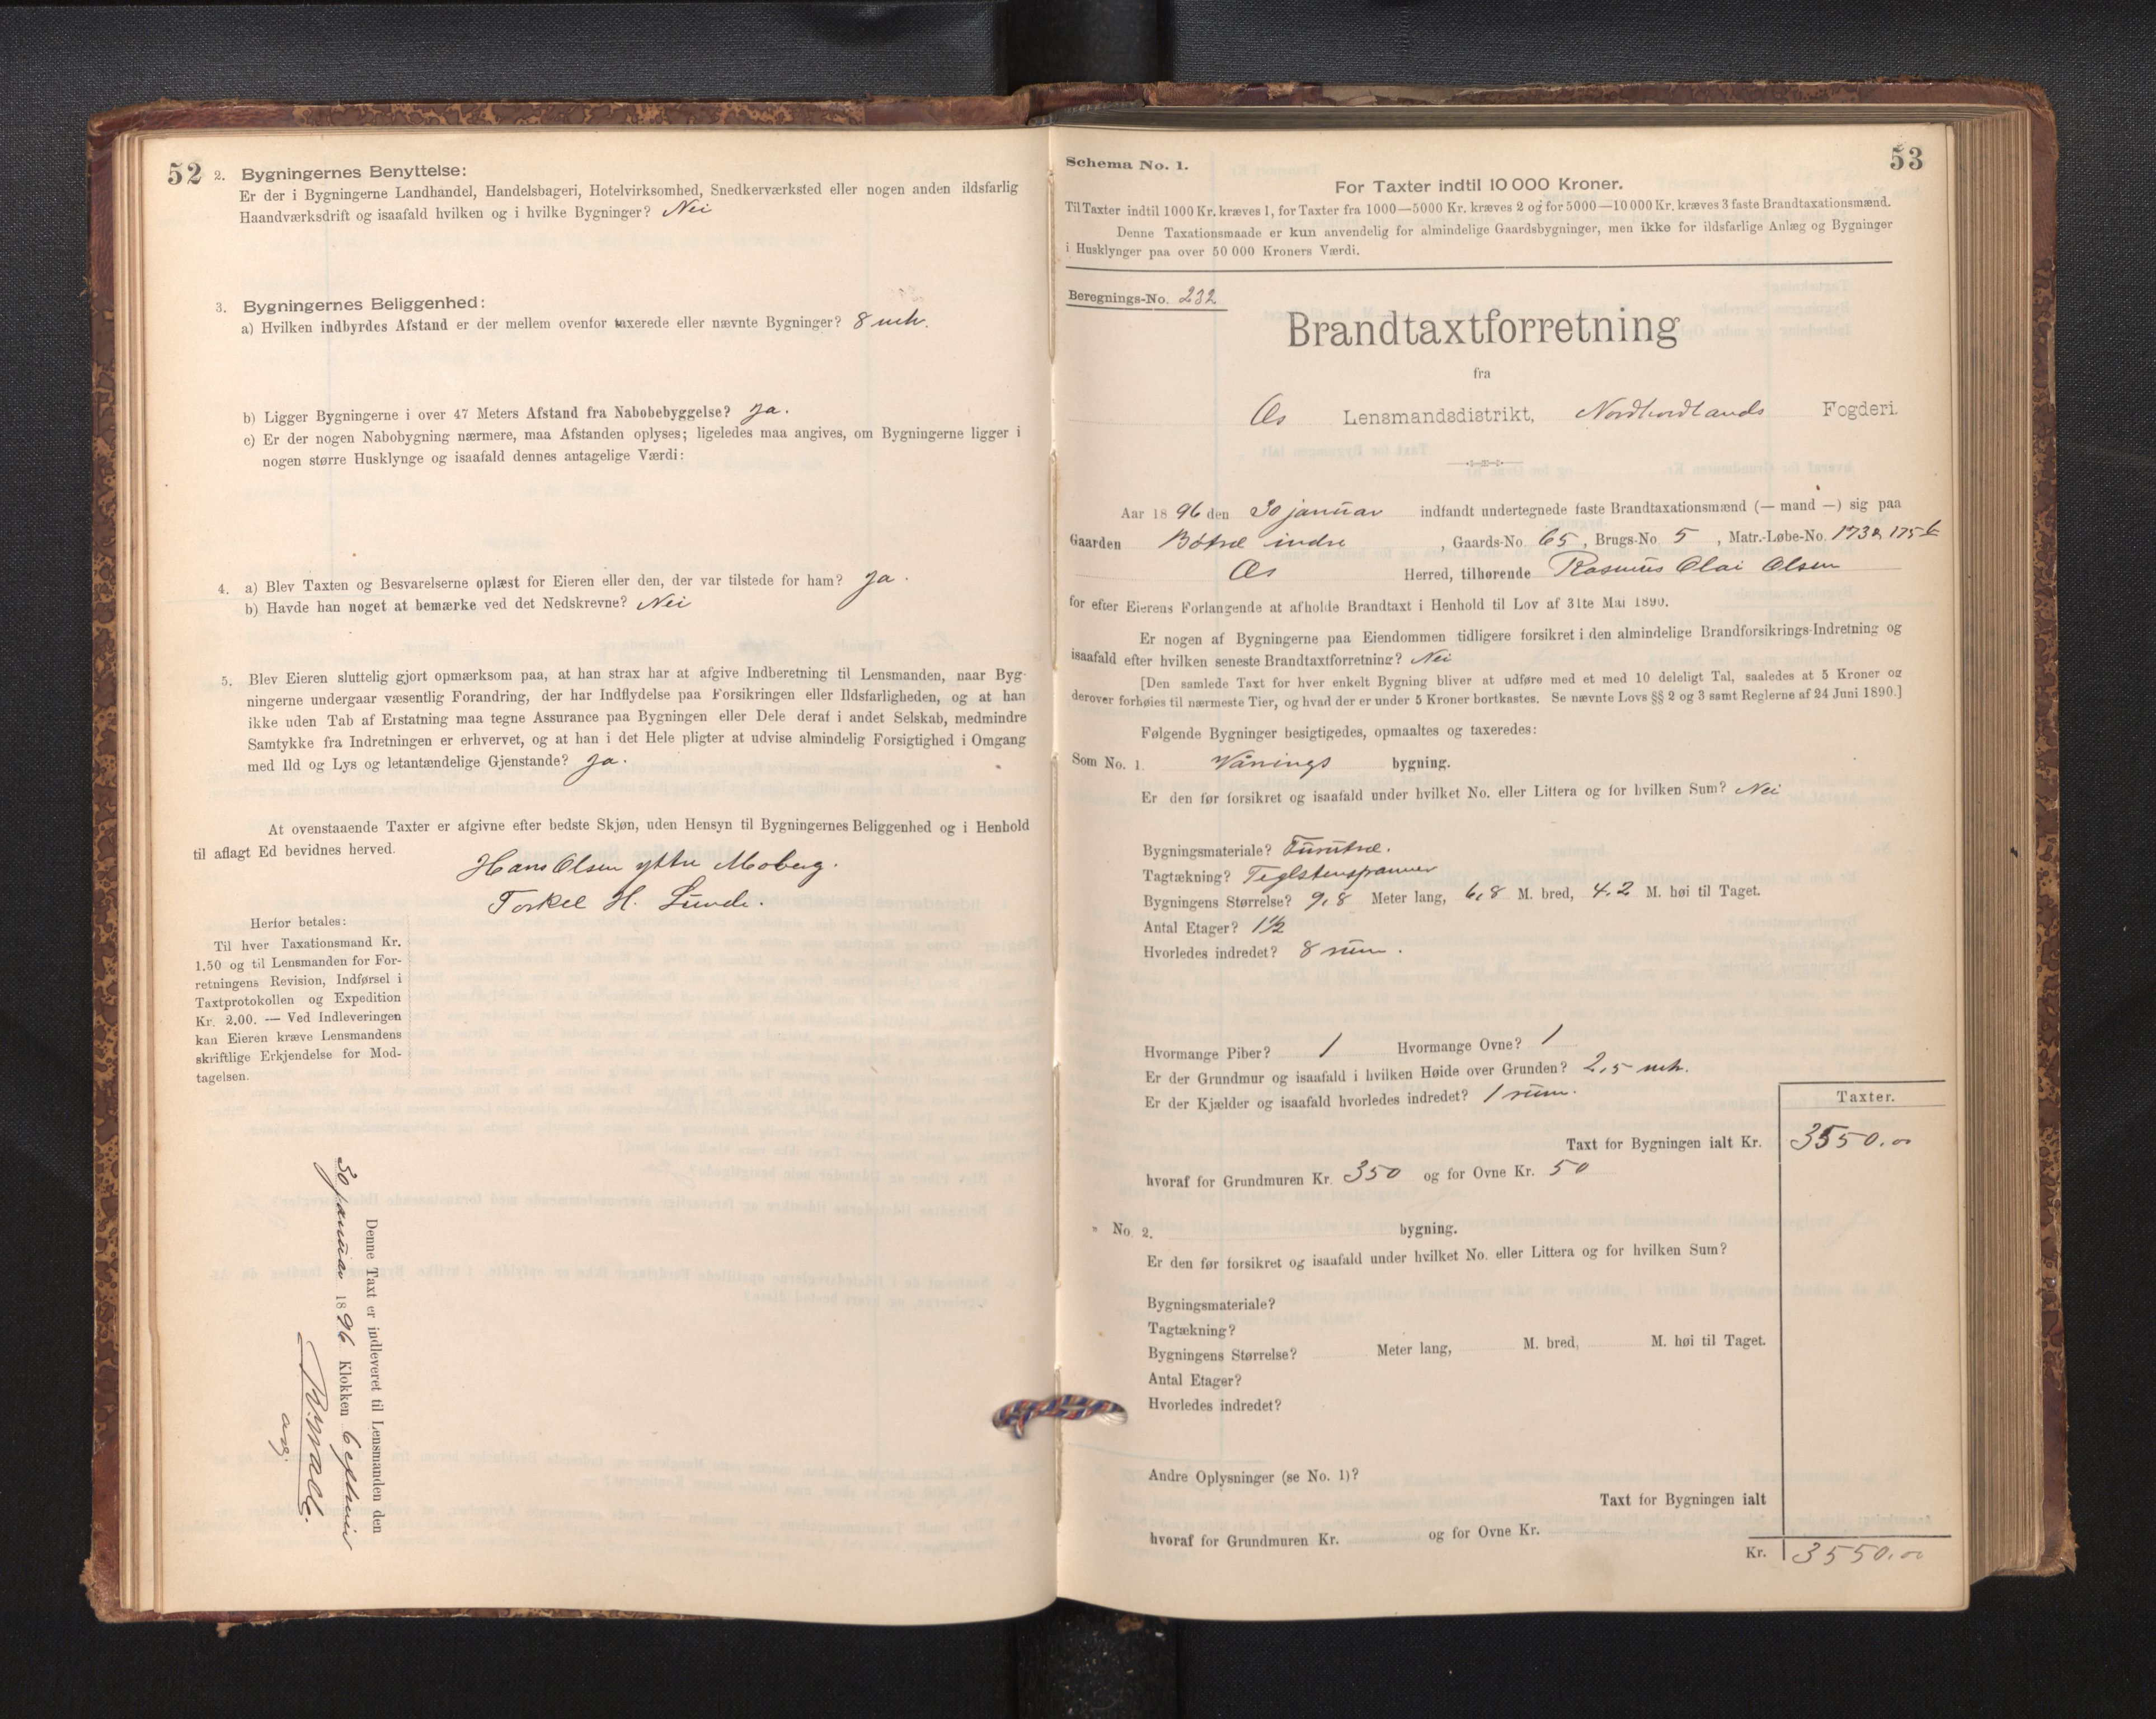 52
2. Bygningernes Benyttelse:
Er der i Bygningerne Landhandel, Handelsbageri, Hotelvirksomhed, Snedkerværksted eller nogen anden ildsfarlig
Haandværksdrift og isaafald hvilken og i hvilke Bygninger? Nei
3. Bygningernes Beliggenhed:
a) Hvilken indbyrdes Afstand er der mellem ovenfor taxerede eller nævnte Bygninger? 8 mtr.
b) Ligger Bygningerne i over 47 Meters Afstand fra Nabobebyggelse? Ja.
c) Er der nogen Nabobygning nærmere, maa Afstanden oplyses; ligeledes maa angives, om Bygningerne ligger i
nogen større Husklynge og isaafald dennes antagelige Værdi:
4. a) Blev Taxten og Besvarelserne oplæst for Eieren eller den, der var tilstede for ham? Ja.
b) Havde han noget at bemærke ved det Nedskrevne? Nei
5. Blev Eieren sluttelig gjort opmærksom paa, at han strax har at afgive Indberetning til Lensmanden, naar Byg-
ningerne undergaar væsentlig Forandring, der har Indflydelse paa Forsikringen eller Ildsfarligheden, og at han
ikke uden Tab af Erstatning maa tegne Assurance paa Bygningen eller Dele deraf i andet Selskab, medmindre
Samtykke fra Indretningen er erhvervet, og at han i det Hele pligter at udvise almindelig Forsigtighed i Omgang
med Ild og Lys og letantændelige Gjenstande? Ja.
At ovenstaaende Taxter er afgivne efter bedste Skjøn, uden Hensyn til Bygningernes Beliggenhed og i Henhold
til aflagt Ed bevidnes herved.
Hans Olsen ytre Moberg.
Torkel H. Lunde.
Herfor betales:
Til hver Taxationsmand Kr.
1.50 og til Lensmanden for For-
retningens Revision, Indførsel i
Taxtprotokollen og Expedition
Kr. 2.00. — Ved Indleveringen
kan Eieren kræve Lensmandens
skriftlige Erkjendelse for Mod-
tagelsen.
Denne Taxt er indleveret til Lensmanden den
30 januar 1896 Klokken 6 eftmid
53
Schema No. 1.
For Taxter indtil 10 000 Kroner.
Til Taxter indtil 1000 Kr. kræves 1, for Taxter fra 1000—5000 Kr. kræves 2 og for 5000—10 000 Kr. kræves 3 faste Brandtaxationsmænd.
Denne Taxationsmaade er kun anvendelig for almindelige Gaardsbygninger, men ikke for ildsfarlige Anlæg og Bygninger
i Husklynger paa over 50 000 Kroners Værdi.
Beregnings-No. 232
Brandtaxtforretning
fra
Os Lensmandsdistrikt, Nordhordlands Fogderi.
Aar 1896 den 30 januar indfandt undertegnede faste Brandtaxationsmænd (— mand —) sig paa
Gaarden indre, Gaards-No. 65, Brugs-No 5, Matr.-Løbe-No. 173a, 175b
Os Herred, tilhørende Rasmus Olai Olsen
for efter Eierens Forlangende at afholde Brandtaxt i Henhold til Lov af 31te Mai 1890.
Er nogen af Bygningerne paa Eiendommen tidligere forsikret i den almindelige Brandforsikrings-Indretning og
isaafald efter hvilken seneste Brandtaxtforretning? Nei
[Den samlede Taxt for hver enkelt Bygning bliver at udføre med et med 10 deleligt Tal, saaledes at 5 Kroner og
derover forhøies til nærmeste Tier, og hvad der er under 5 Kroner bortkastes. Se nævnte Lovs §§ 2 og 3 samt Reglerne af 24 Juni 1890.]
Følgende Bygninger besigtigedes, opmaaltes og taxeredes:
Som No. 1. Vånings bygning.
Er den før forsikret og isaafald under hvilket No. eller Littera og for hvilken Sum? Nei
Bygningsmateriale? Furutræ.
Tagtækning? Teglstenspanner
Bygningens Størrelse? 9,8 Meter lang, 6,8 M. bred, 4.2 M. høi til Taget.
Antal Etager? 1½
Hvorledes indredet? 8 rum.
Hvormange Piber? 1 Hvormange Ovne? 1
Er der Grundmur og isaafald i hvilken Høide over Grunden? 2,5 mtr.
Er der Kjælder og isaafald hvorledes indredet? 1 rum.
Taxter.
Taxt for Bygningen ialt Kr. 3550.00
hvoraf for Grundmuren Kr. 350 og for Ovne Kr. 50
" No. 2. bygning.
Er den før forsikret og isaafald under hvilket No. eller Littera og for hvilken Sum?
Bygningsmateriale?
Tagtækning?
Bygningens Størrelse? Meter lang, M. bred, M. høi til Taget.
Antal Etager?
Hvorledes indredet?
Andre Oplysninger (se No. 1)?
Taxt for Bygningen ialt
hvoraf for Grundmuren Kr. og for Ovne Kr.
Kr. 3550.00